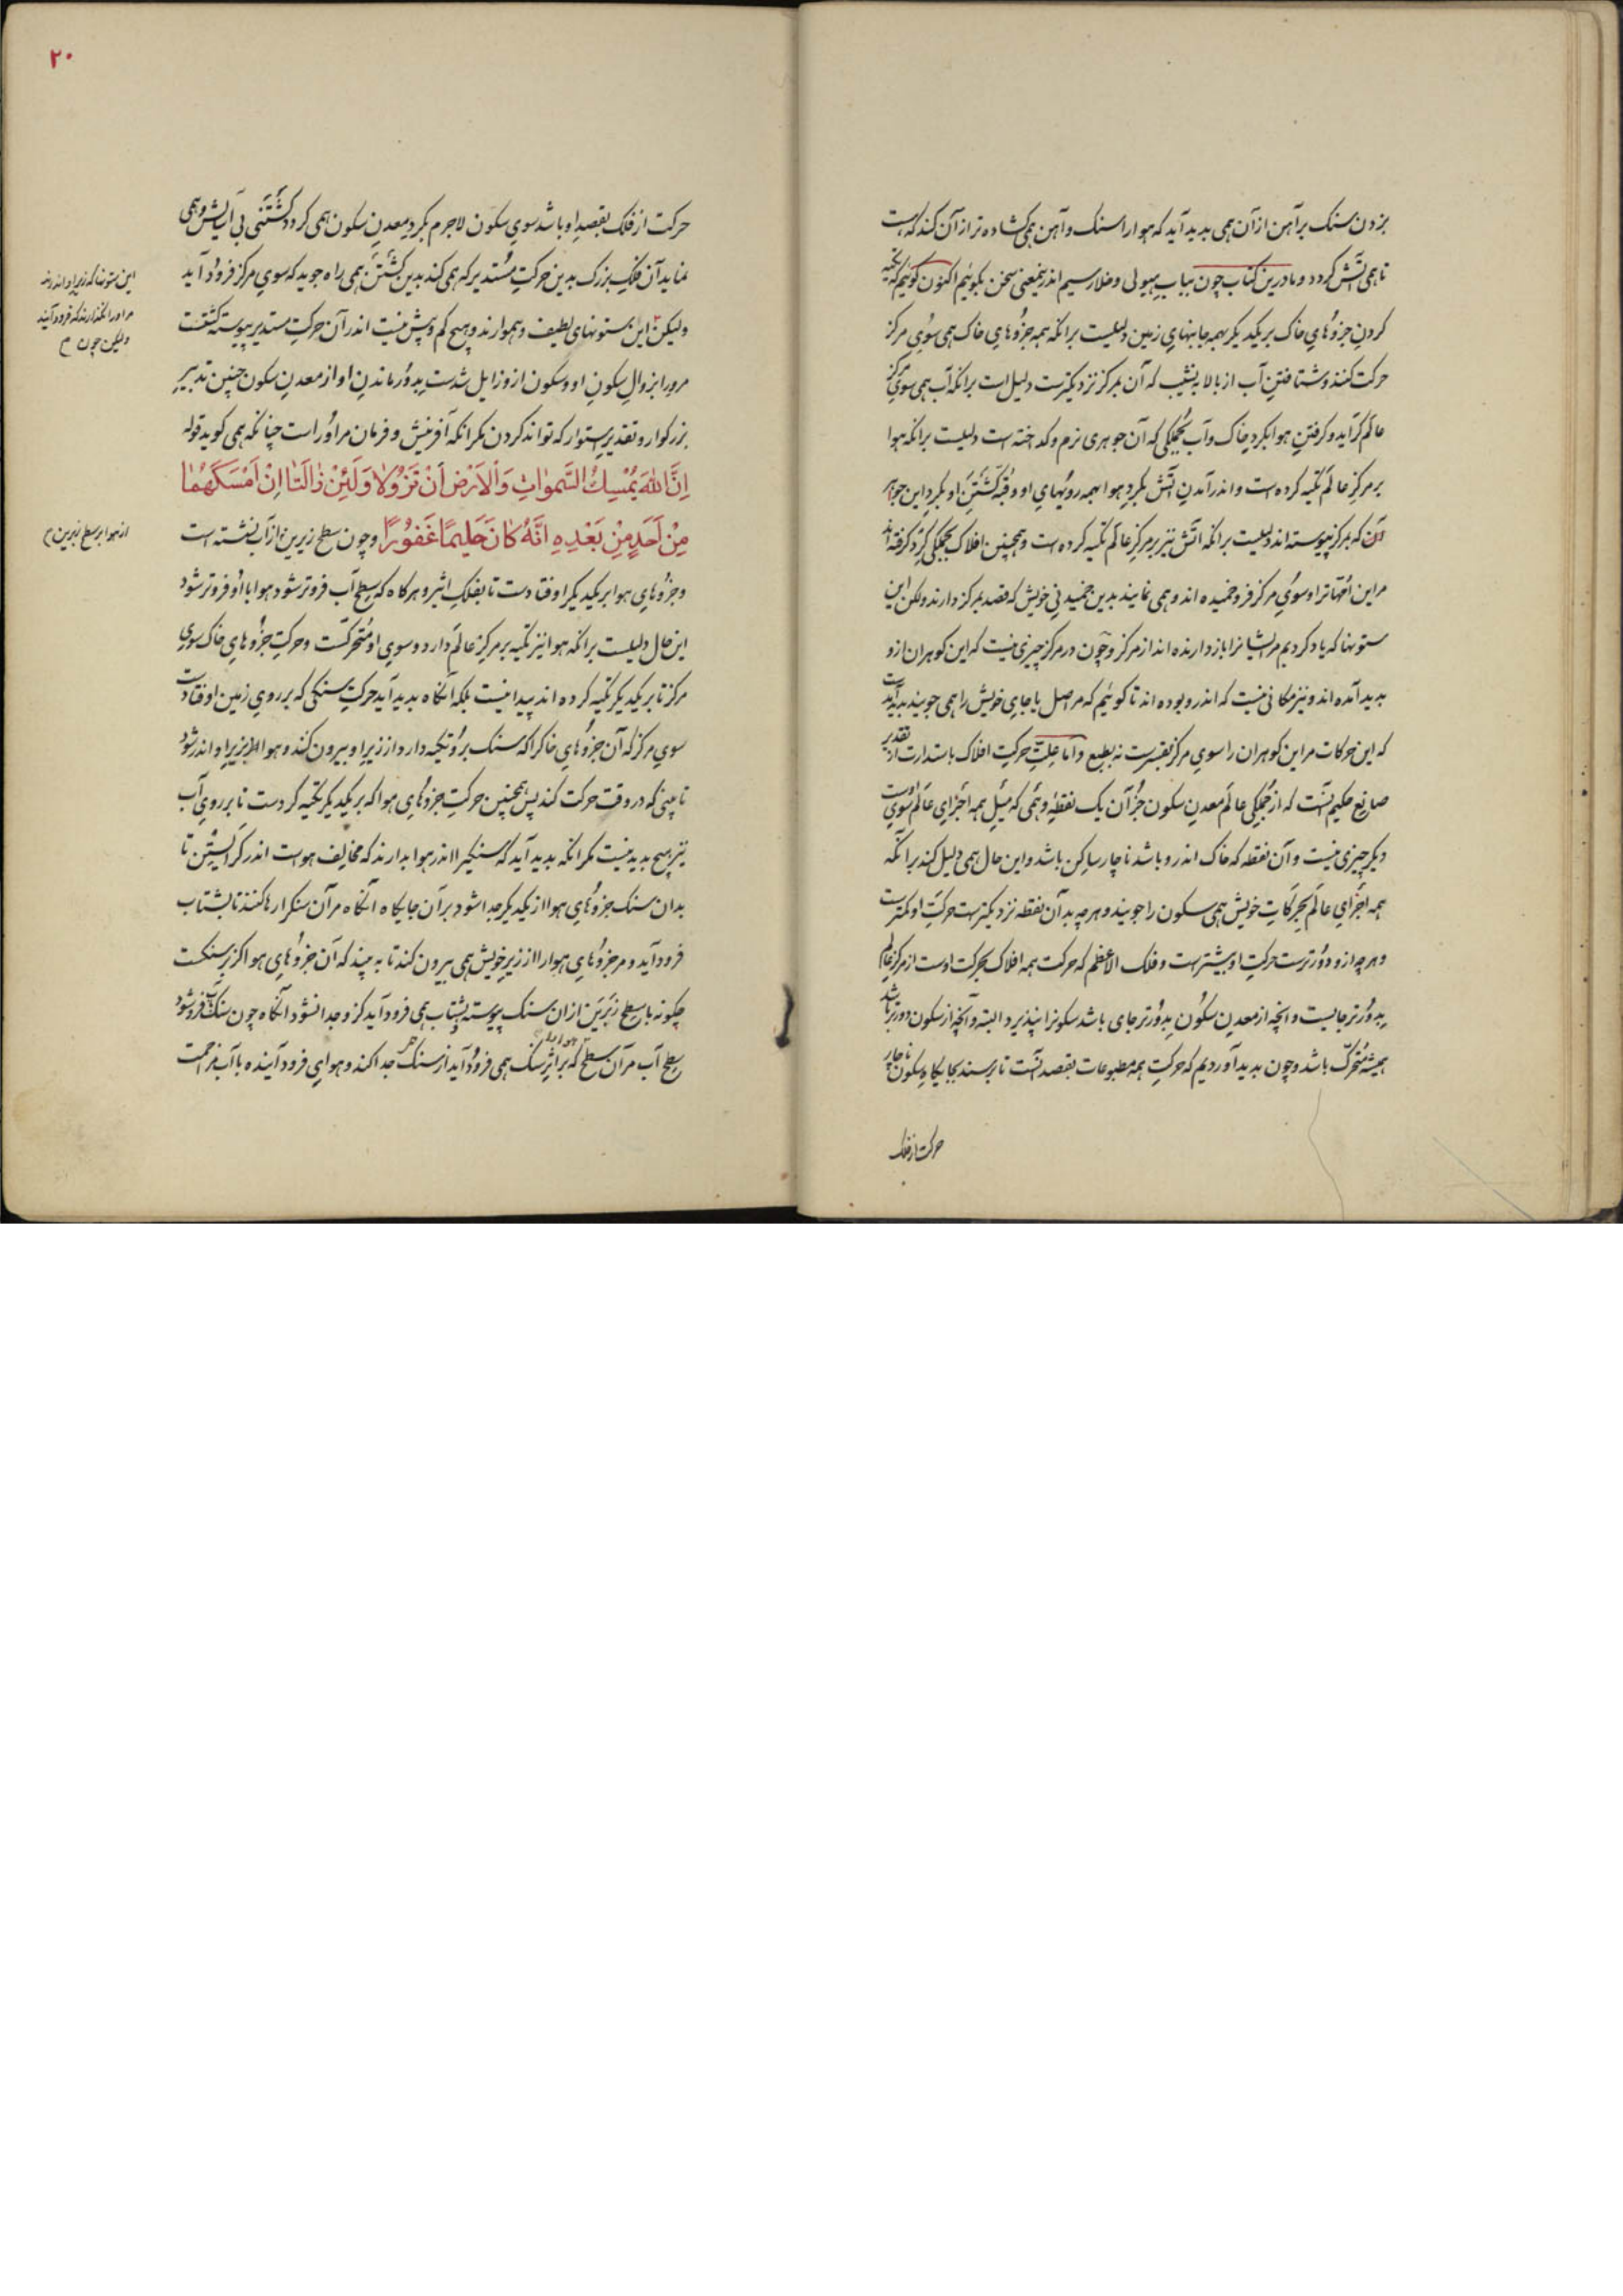 بزدن سنگ بر آهن از آن همی بدید آید که هوا را سنگ و آهن همی گشاده‌تر از آن کند که هست
تا همی آتش گردد و ما در این کتاب چون بباب هیولی و خلا رسیم اندر این معنی سخن بگوئیم اکنون گوئیم که تکیه
کردن جزوهای خاک بر یکدیگر بهمه جانبهای زمین دلیلست بر آنکه همه جزوهای خاک همی سوی مرکز
حرکت کنند و شتافتن آب از بالا به نشیب که آن بمرکز نزدیکترست دلیل است بر آنکه آب همی سوی مرکز
عالم گراید و گرفتن هوا بگرد خاک و آب بجملگی که آن جوهری نرم و گداخته است دلیلست بر آنکه هوا
بر مرکز عالم تکیه کرده است و اندر آمدن آتش بگرد هوا بهمه رویهای او و قبه گشتن او بگرد این جواهر
آن که بمرکز پیوسته‌اند دلیلست بر آنکه آتش نیز بر مرکز عالم تکیه کرده است و همچنین افلاک بجملگی گرد گرفته‌اند
مر این امهات را و سوی مرکز فرو خمیده‌اند و همی نمایند بدین خمیدنی خویش که قصد بمرکز دارند ولکن این
ستونها که یاد کردیم مر ایشانرا باز دارنده‌اند از مرکز و چون در مرکز چیزی نیست که این گوهران از و
بدید آمده‌اند و نیز مکانی نیست که اندر و بوده‌اند تا گوئیم که مر اصل یا جای خویش را همی جویند بدید آمدست
که این حرکات مر این گوهران را سوی مرکز بقسرست نه بطبع و اما علت حرکت افلاک باستدارت از تقدیر
صانع حکیم آنست که از جملگی عالم معدن سکون جز آن یک نقطه وهمی که میل همه اجزای عالم سوی اوست
دیگر چیزی نیست و آن نقطه که خاک اندر و باشد ناچار ساکن باشد و این حال همی دلیل کند بر آنکه
همه اجزای عالم بحرکات خویش همی سکون را جویند و هر چه بدان نقطه نزدیکترست حرکت او کمترست
و هر چه ازو دورترست حرکت او بیشترست و فلک الاعظم که حرکت همه افلاک بحرکت اوست از مرکز عالم
بدورتر جائیست و آنچه از معدن سکون بدورتر جای باشد سکونرا نپذیرد البته و آنچه از سکون دورتر باشد
همیشه متحرک باشد و چون بدید آوردیم که حرکت همه مطبوعات بقصد آنست تا برسند بجایگاه سکون ناچار
حرکت از فلک
۲۰
حرکت از فلک بقصد او باشد سوی سکون لاجرم بگرد معدن سکون همی گردد گشتنی بی آسایش و همی
نماید آن فلک بزرگ بدین حرکت مستدیر که همی کند بدین گشتن همی راه جوید که سوی مرکز فرود آید
ولیکن این ستونهای لطیف و هموارند و هیچ کم و بیش نیست اندر آن حرکت مستدیر پیوسته گشتست
مر ورا بزوال سکون او و سکون ازو زایل شدست بدور ماندن او از معدن سکون چنین تدبیر
بزرگوار و تقدیر استوار که تواند کردن مگر آنکه آفرینش و فرمان مر او راست چنانکه همی گوید قوله
اِنَّ اللهَ يُمْسِكُ السَّمٰواتِ وَالْاَرْضَ اَنْ تَزُولَا وَلَئِنْ زَالَتَا اِنْ اَمْسَكَهُمَا
مِنْ اَحَدٍ مِنْ بَعْدِهِ اِنَّهُ كَانَ حَلِيمًا غَفُورًا و چون سطح زبرین از آب نشسته است
و جزوهای هوا بر یکدیگر اوفتادست تا بفلک اثیر و هر گاه که سطح آب فروتر شود هوا با او فروتر شود
این حال دلیلست بر آنکه هوا نیز تکیه بر مرکز عالم دارد و سوی او متحرکست و حرکت جزوهای خاک سوی
مرکز تا بر یکدیگر تکیه کرده‌اند پیدا نیست بلکه آنگاه بدید آید حرکت سنگی که بر روی زمین اوفتادست
سوی مرکز که آن جزوهای خاکرا که سنگ برو تکیه دارد از زیر او بیرون کنند و هوا بزیر او اندر شود
تا ببینی که در وقت حرکت کند پس همچنین حرکت جزوهای هوا که بر یکدیگر تکیه کردست تا بر روی آب
نیز هیچ بدید نیست مگر آنکه بدید آید که سنگیرا اندر هوا بدارند که مخالف هواست اندر گرایستن تا
بدان سنگ جزوهای هوا از یکدیگر جدا شود بر آن جایگاه آنگاه مر آن سنگ را رها کنند تا بشتاب
فرود آید و مر جزوهای هوا را از زیر خویش همی بیرون کند تا به بیند که آن جزوهای هوا کز بر سنگست
چگونه با سطح زبرین از آن سنگ پیوسته بشتاب همی فرود آید کزو جدا نشود آنگاه چون سنگ بآب فرو شود
سطح آب مر آن سطح هوا را که بر اثر سنگ همی فرود آید از سنگ جدا کند و هوای فرود آینده با آب بزحمت
این ستونها که زیر او اندرند
مر او را نگذارند که فرود آید
ولیکن چون م
از هوا بر سطح زبرین م